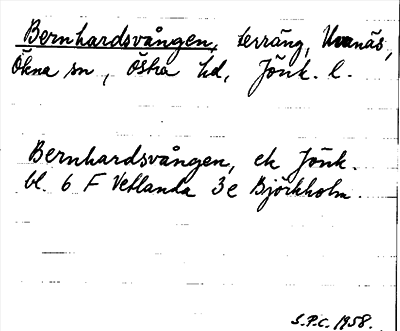 Bernhardsvången, terräng, Uvanäs,
Ökna sn, Östra hd, Jönk. l.
Bernhardsvången, ek Jönk.
bl. 6 F Vetlanda 3e Björkholm.
S.P.C. 1958.